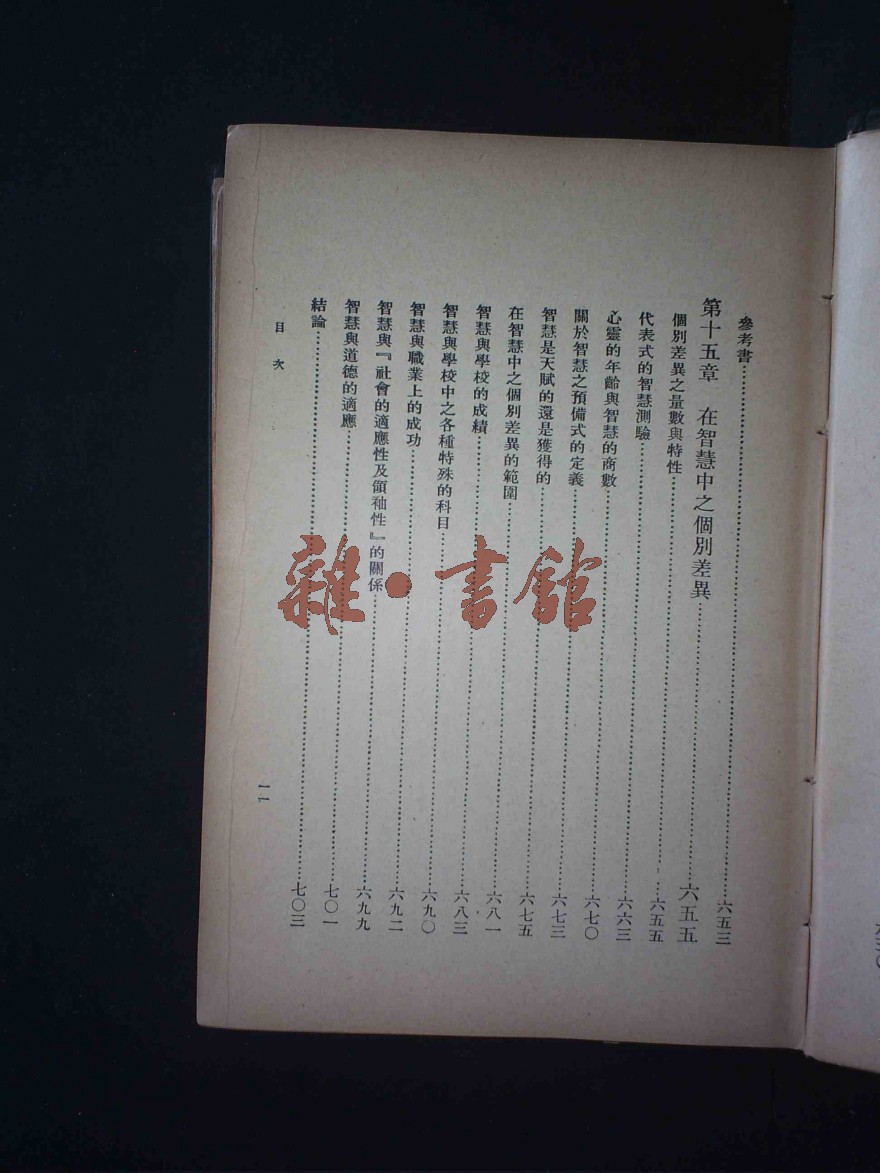 參考書……………六五三
第十五章　在智慧中之個別差異……………六五五
個別差異之量數與特性……………六五五
代表式的智慧測驗……………六六三
心靈的年齡與智慧的商數……………六七〇
關於智慧之預備式的定義……………六七三
智慧是天賦的還是獲得的……………六七五
在智慧中之個別差異的範圍……………六八一
智慧與學校的成績……………六八三
智慧與學校中之各種特殊的科目……………六九〇
智慧與職業上的成功……………六九二
智慧與『社會的適應性及領袖性』的關係……………六九九
智慧與道德的適應……………七〇一
結論……………七〇三
目次
一一
雜·書館